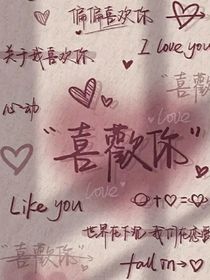 偏偏喜欢你
关于我喜欢你
I love you
心动
喜歡
Love
"喜歡你"
love
Like you
+ =
世界在下沉 我们在恋爱
"喜歡你"→
fall in →